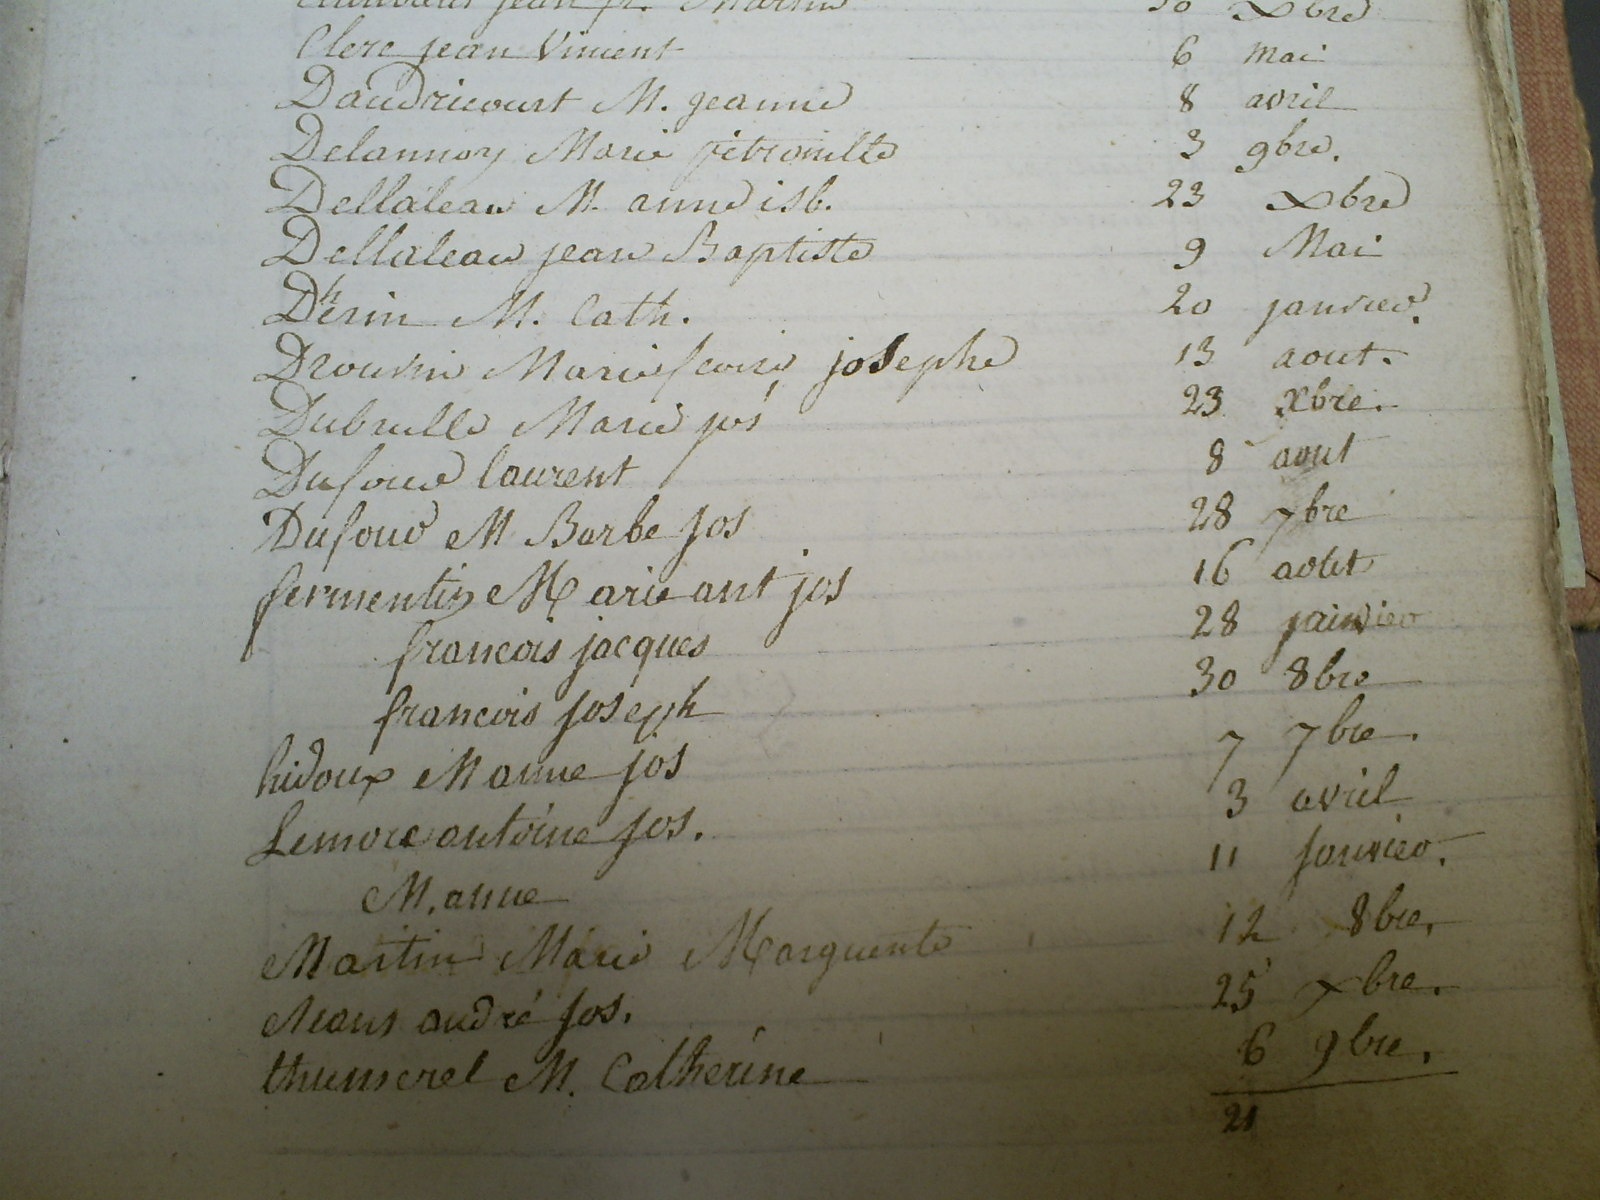 jean fr. Martin 30 xbre
Clerc jean Vincent 6 mai
Daudricourt M. jeanne 8 avril
Delannoy Marie petronille 3 9bre.
Dellaleau M. anne isb. 23 xbre
Dellaleau jean Baptiste 9 Mai
Dhérin M. Cath. 20 janvier.
Drouvin Marie josephe 13 aout.
Dubrulle Marie jos 23 xbre.
Dufour laurent 8 aout
Dufour M Barbe jos 28 7bre
fermentin Marie ant jos 16 aout
francois jacques 28 janvier
francois joseph 30 8bre
hidoux M anne jos 7 7bre.
Lemore antoine jos. 3 avril
M. anne 11 janvier.
Martin Marie Marguerite 12 8bre.
andré jos. 25 xbre.
thumerel M. Catherine 6 9bre.
21